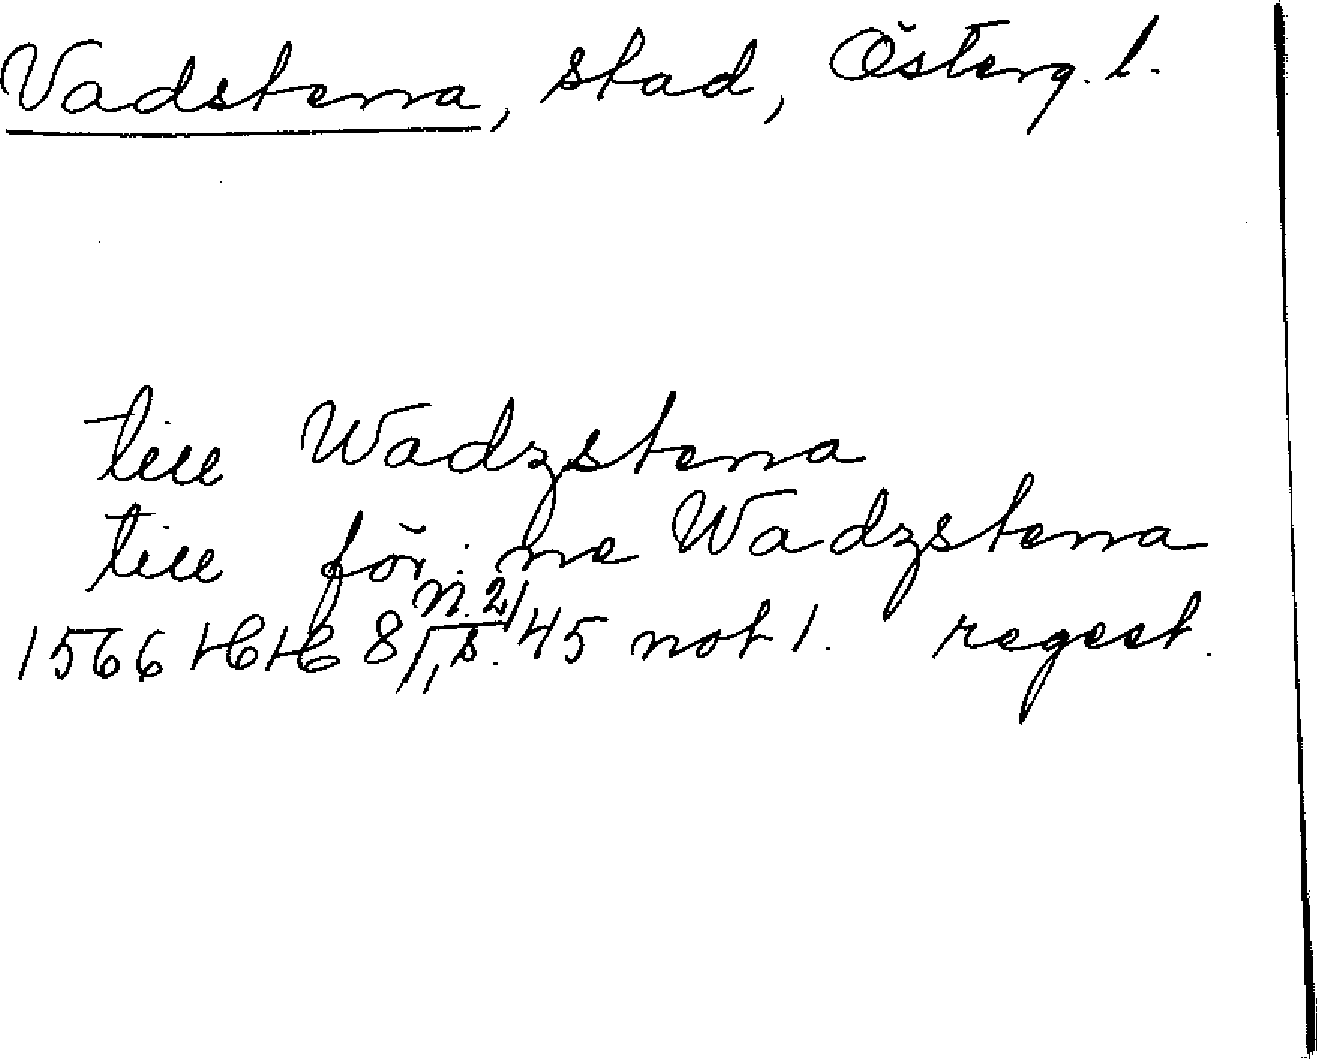 Vadstena, stad, Österg. l.
till Wadzstena
till för:ne Wadzstena
1566 HH 8/1, n. 2, s. 45 not 1. regest.